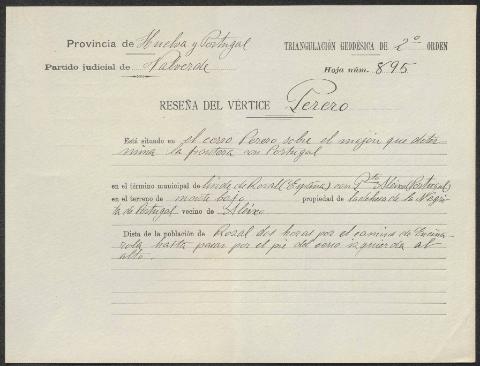 Provincia de Huelva y Portugal
TRIANGULACIÓN GEODÉSICA DE 2º ORDEN
Partido judicial de Valverde
Hoja núm. 895
RESEÑA DEL VÉRTICE Perero
Está situado en el cerro Perero sobre el mojón que deter-
mina la frontera con Portugal
en el término municipal de linde de Rosal (España) con (Portugal)
en el terreno de monte bajo propiedad de la dehesa de la Negri-
ta de Portugal vecino de
Dista de la población de Rosal dos horas por el camino de Encina-
sola hasta pasar por el pie del cerro izquierda al
alto.